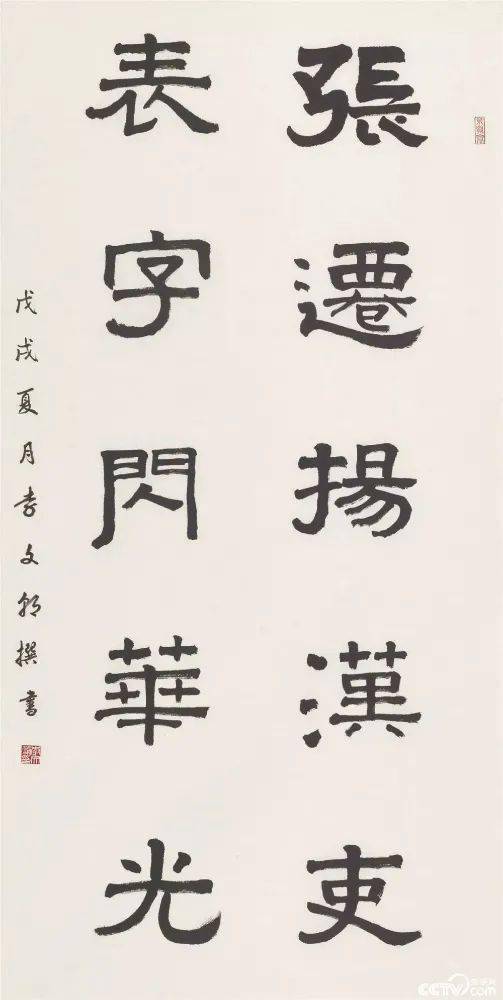 張遷揚漢吏
表字閃華光
戊戌夏月李文朝撰書
CCTV.com